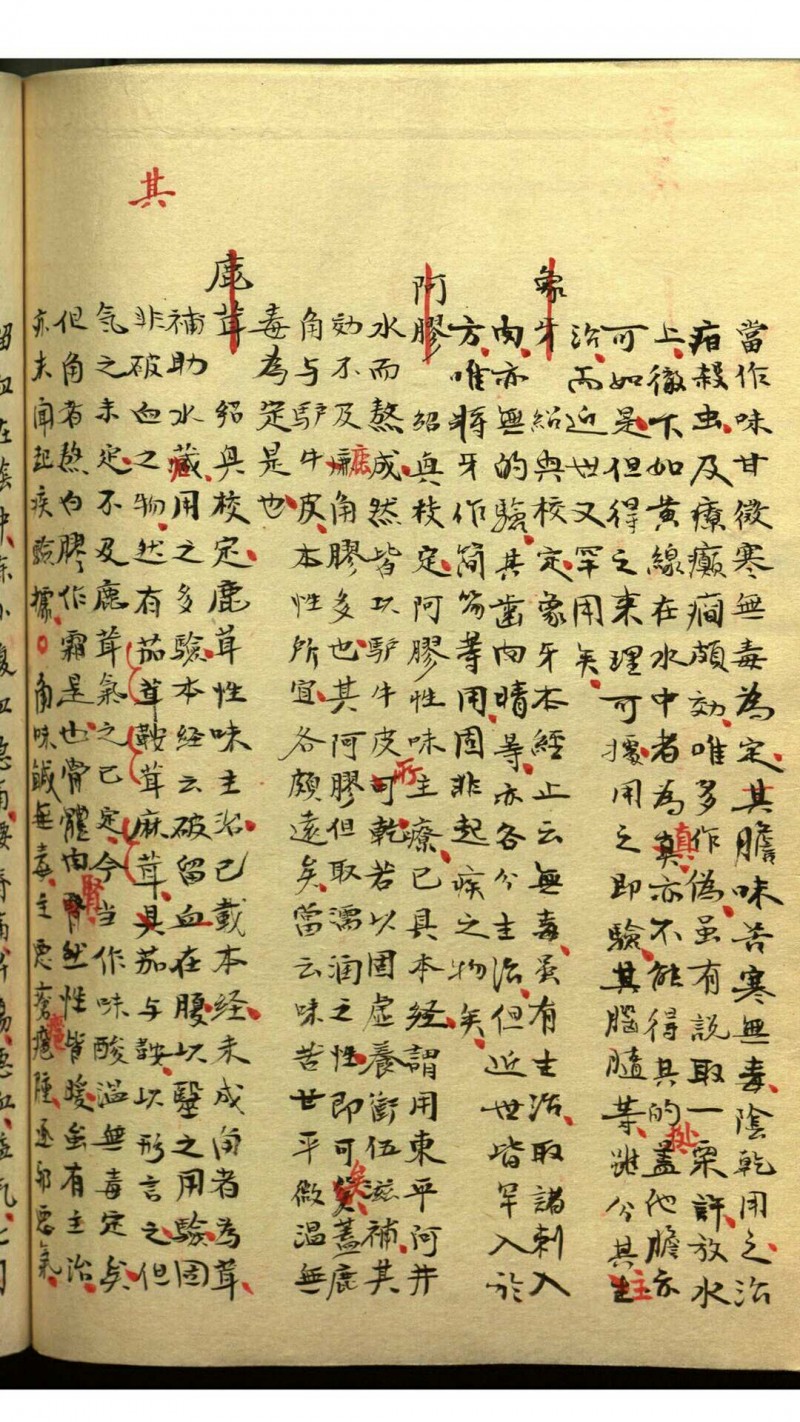 當作味甘微寒無毒為定其膽味苦寒無毒陰乾用之治
疳殺虫及療癲癇頗効唯多作偽虽有説取一粟許放水
上徹下如黄線在水中者為真亦不能得其的盖他膽亦
可如是但得之来理可據用之即驗其腦髓等雖分其主
治而近世又罕用矣
象牙 紹興校定象牙本經止云無毒虽有主治取諸刺入
肉亦無的驗其齒肉睛等亦各分主治但近世皆罕入於
方唯将牙作簡笏等用固非起疾之物矣
阿膠 紹興校定阿膠性味主療已具本経謂用東平阿井
水而熬成然皆以驴牛皮所乾若以固虚養衝伍滋補其
効不及麃角膠多也其阿膠但取濡润之性即可矣蓋鹿
角与驴牛皮本性所宜各頗遠矣當云味苦甘平微温無
毒為定是也
鹿茸 紹興校定鹿茸性味主治已載本经未成角者為茸
補助水蔵用之多驗本经云破留血在腰以毉之用驗固
非破血之物然有茄茸鞍茸麻茸具茄与鞍以形言之但
氣之未定不及鹿茸氣之已定今當作味酸温無毒定矣
但角者熬为膠作霜是也骨髓肉腎然性皆暖虽有主治
亦未聞起疾驗據角味鹹無毒主悪瘡癰腫逐邪悪氣
其